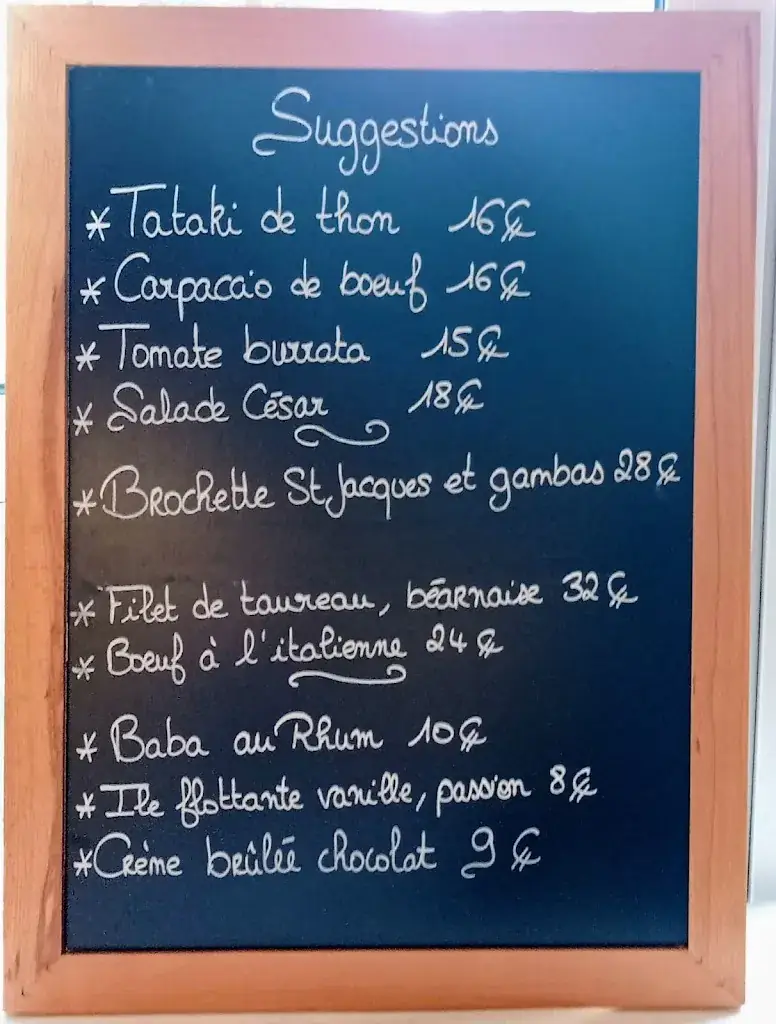 Suggestions
* Tataki de thon 16€
* Carpaccio de boeuf 16€
* Tomate burrata 15€
* Salade César 18€
* Brochette St Jacques et gambas 28€
* Filet de taureau, béarnaise 32€
* Boeuf à l'italienne 24€
* Baba au Rhum 10€
* Ile flottante vanille, passion 8€
* Crème brûlée chocolat 9€